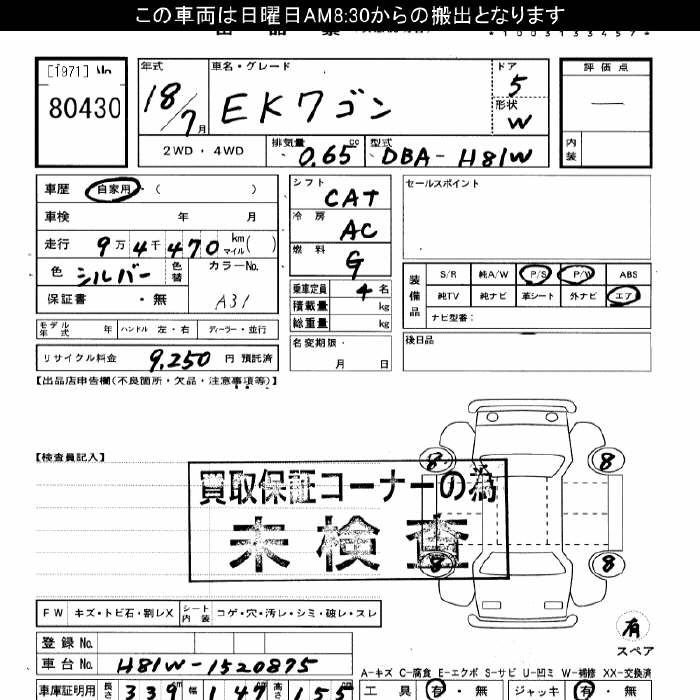 この車両は日曜日AM8:30からの搬出となります
[1971] No
80430
年式 車名・グレード ドア 評価点
18/7月 EKワゴン 5
形状
W
2WD・4WD 排気量 0.65 cc 型式 DBA-H81W 内装
車歴 自家用 ( ) シフト CAT セールスポイント
車検 年 月 冷房 AC
走行 9万4千470 km マイル ( ) 燃料 G
色 シルバー 色替 カラーNo. A31
保証書 ・無
乗車定員 4名
積載量 kg
総重量 kg
装備品 S/R 純A/W P/S P/W ABS
純TV 純ナビ 革シート 外ナビ エア
ナビ型番:
モデル年式 年 ハンドル 左・右 ディーラー・並行
名変期限・ 月 日
後日品
リサイクル料金 9,250 円 預託済
【出品店申告欄(不良箇所・欠品・注意事項等)】
【検査員記入】
8 8
買取保証コーナーの為
未検査
8 8
FW キズ・トビ石・割レX シート内装 コゲ・穴・汚レ・シミ・破レ・スレ
有
スペア
登録No.
車台No. H81W-1520875
A-キズ C-腐食 E-エクボ S-サビ U-凹ミ W-補修 XX-交換済
車庫証明用 長さ 339 幅 147 高さ 155
工具 有・無 ジャッキ 有・無